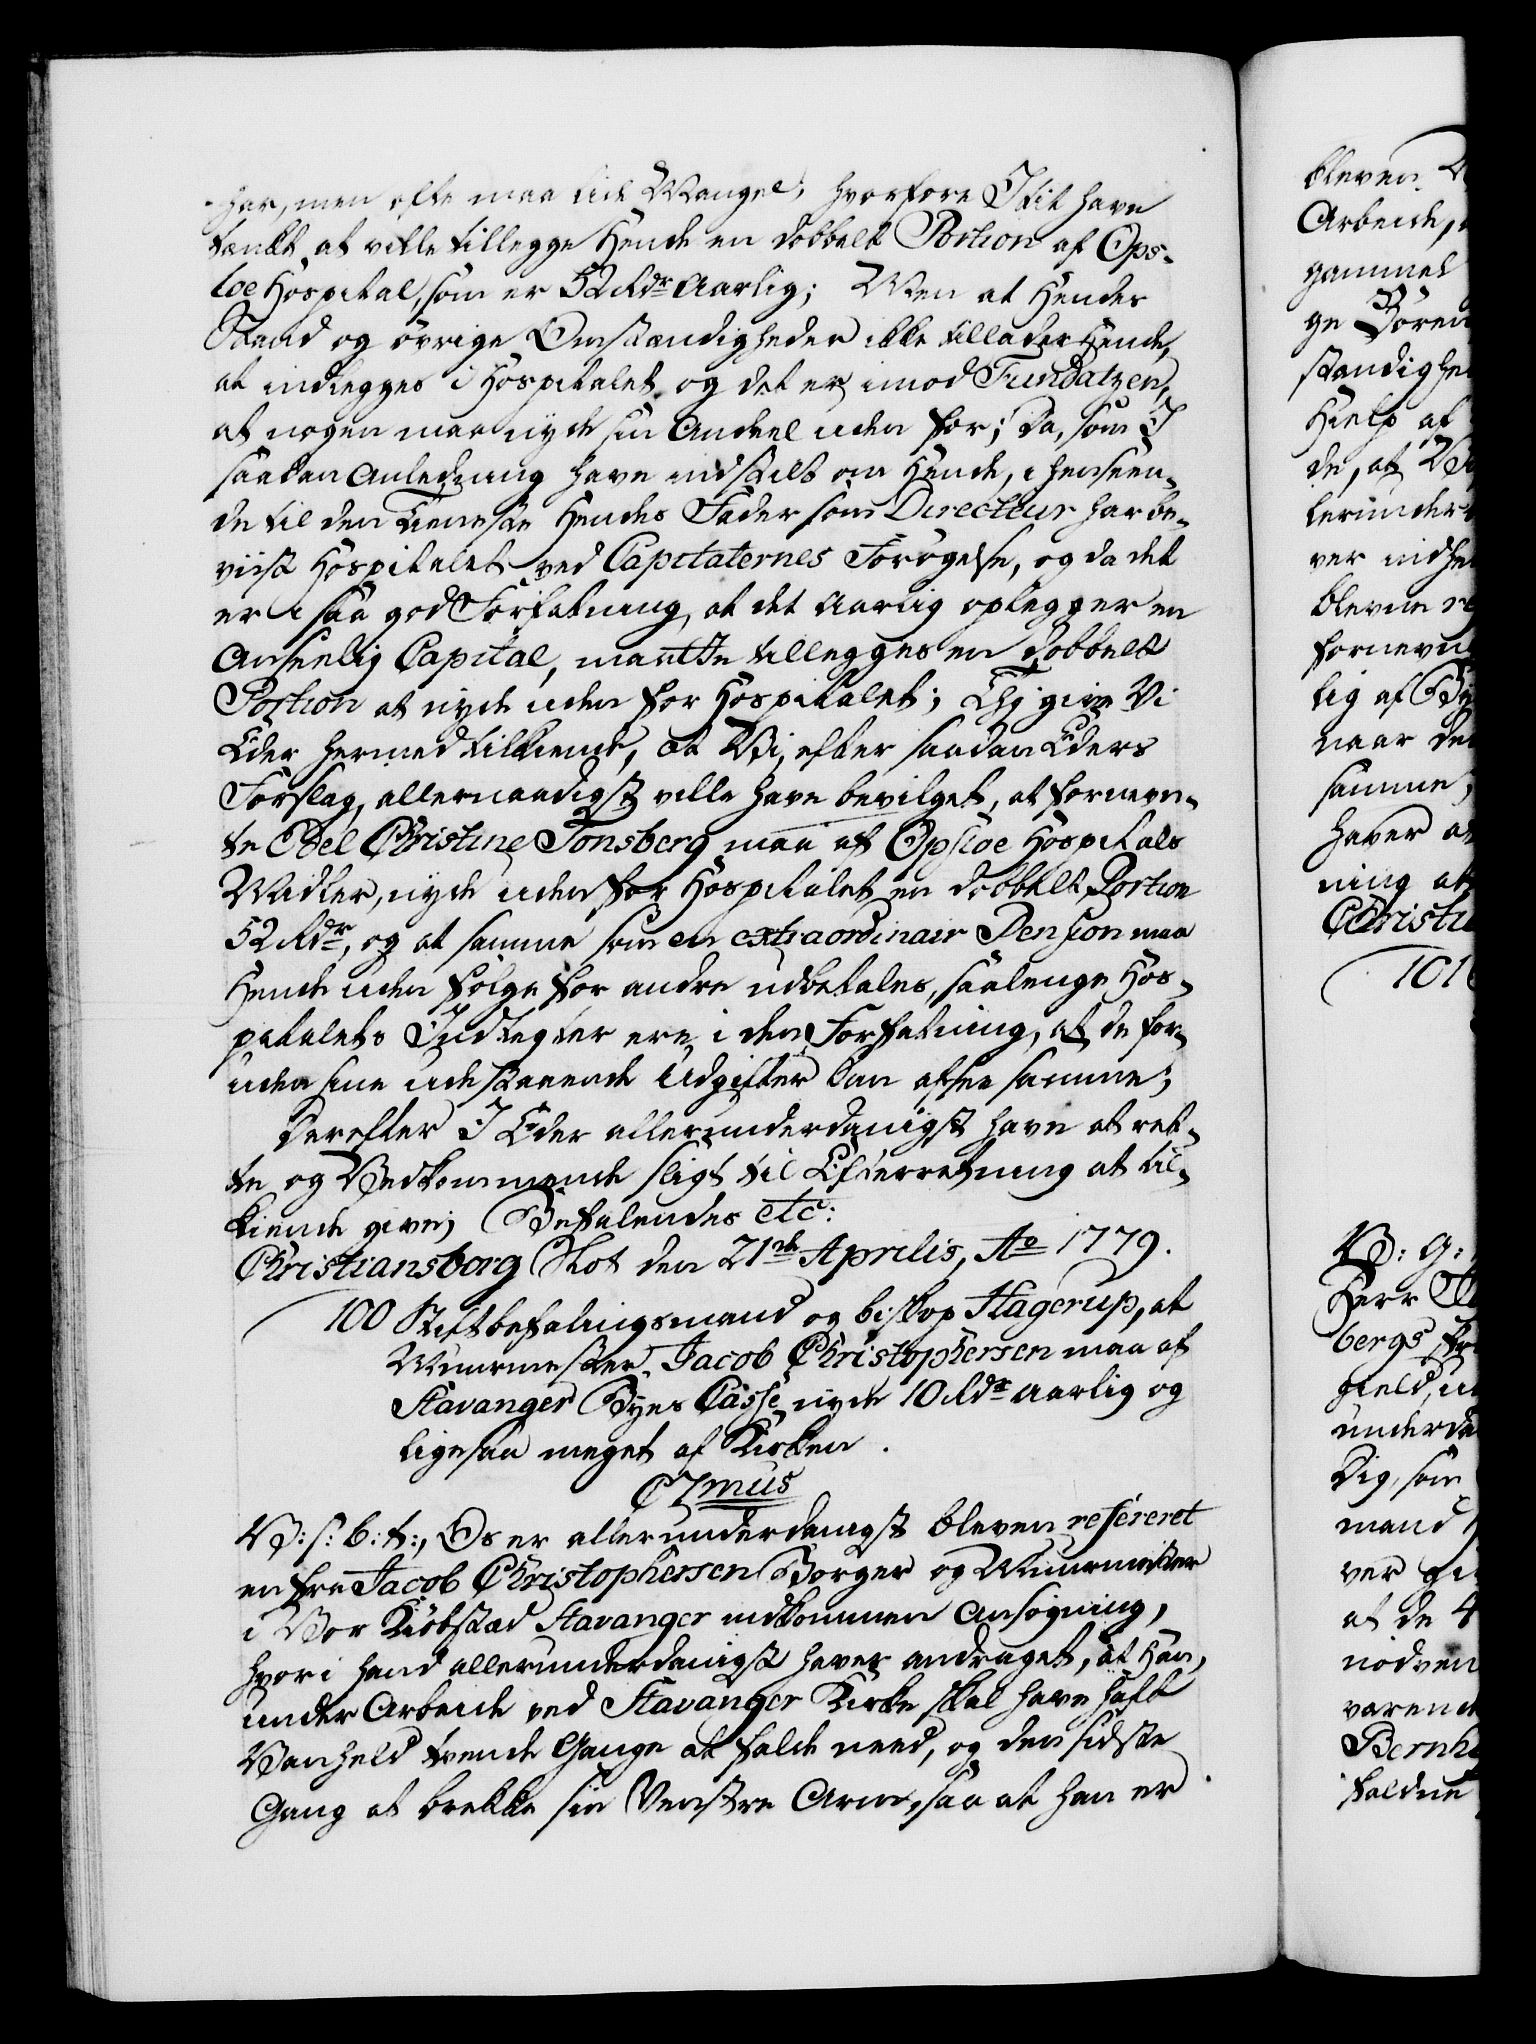 har, men ofte maa lide Mangel, hvorfore I tit have
tænkt at ville tillegge Hende en dobbelt Portion af Ops-
loe Hospital, som er 52 Rdr Aarlig; Men at Hendes
Stand og øvrige Omstændigheder ikke tillader Hende,
at indlegges i Hospitalet, og det er imod Fundatzen,
at nogen maa nyde sin Andeel uden for; Da, som I
saadan Anledning have indstilt om Hende, i henseen-
de til den Tieneste Hendes Fader som Directeur har be-
viist Hospitalet ved Capitalernes Forøgelse, og da det
er i saa god Forfatning, at det Aarlig oplegger en
Anseelig Capital, maatte tillegges en Dobbelt
Portion at nyde uden for Hospitalet; Thj give Vi
Eder hermed tilkiende, at Vi, efter saadan Eders
Forslag, allernaadigst ville have bevilget, at fornevn-
te Edel Christine Tonsberg maa af Opsloe Hospitals
Midler, nyde uden for Hospitalet en dobbelt Portion
52 Rdr, og at samme som en extraordinair Pension maa
Hende uden følge for andre udbetales, saalenge Hos-
pitalets Indtegter ere i den Forfatning, at de for-
uden sine udestaaende Udgifter kan afsee samme;
Derefter I Eder allerunderdanigst have at ret-
te og Vedkommende sligt til Efterretning at til-
kiende give; Befalendes etc:
Christiansborg Slot den 21de Aprilis, Ao 1779.
100 Stiftbefalingsmand og biskop Hagerup, at
Muurmester Jacob Christophersen maa af
Stavanger Byes Casse nyde 10 Rdr Aarlig og
ligesaa meget af Kirken.
C7mus
V: s: b: t:, Os er allerunderdanigst bleven refereret
en fra Jacob Christophersen Borger og Muurmester
i Vor Kiøbstad Stavanger indkommen Ansøgning,
hvori hand allerunderdanigst haver andraget, at Han,
under Arbeide ved Stavanger Kirke skal have haft
Vanheld tvende Gange at falde need, og den sidste
Gang at brekke sin Venstre Arm, saa at han er
bleven
Arbeide,
gammel
ge Børen
standighe
Hielp af
de, at
lerunder
ver indhe
blevne re
fornevn
lig af By
naar de
samme;
haver at
ning at
Christi
101
V: G:
Herr
bergs
field, u
underda
Dig, som
mand
ver
at de 4
nødven
varend
Bernh
faldne